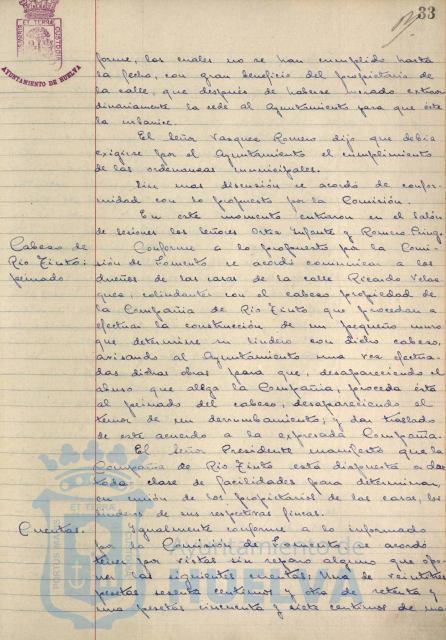 33
AYUNTAMIENTO DE HUELVA
forme, los cuales no se han cumplido hasta
la fecha, con gran beneficio del propietario de
la calle, que después de haberse lucrado extraor
dinariamente la cede al Ayuntamiento para que éste
la urbanice.
El Señor Vazquez Romero dijo que debía
exigirse por el Ayuntamiento el cumplimiento
de las ordenanzas municipales.
Sin mas discusión se acordó de confor-
midad con lo propuesto por la Comisión.
En este momento entraron en el Salón
de sesiones los señores Ortiz Infante y Romero
Cabezo de
Rio Tinto:
peinado
Conforme a lo propuesto por la Comi-
sión de Fomento se acordó comunicar a los
dueños de las casas de la calle Ricardo Velaz
quez, colindantes con el cabezo propiedad de
la Compañia de Rio Tinto que procedan a
efectuar la construcción de un pequeño muro
que determine su lindero con dicho cabezo,
avisando al Ayuntamiento una vez efectua-
das dichas obras para que, desapareciendo el
abuso que alega la Compañia, proceda ésta
al peinado del cabezo, desapareciendo el
temor de un derrumbamiento; y dar traslado
de este acuerdo a la expresada Compañia.
El Señor Presidente manifestó que la
Compañia de Rio Tinto está dispuesta a dar
toda clase de facilidades para determinar,
en unión de los propietarios de las casas, los
linderos de sus respectivas fincas.
Cuentas.
Igualmente conforme a lo informado
por la Comisión de Fomento se acordó
tener por vistas sin reparo alguno que opo-
ner las siguientes cuentas: Una de veintitres
pesetas sesenta centimos y otra de setenta y
una pesetas cincuenta y siete centimos de
Ayuntamiento de
HUELVA